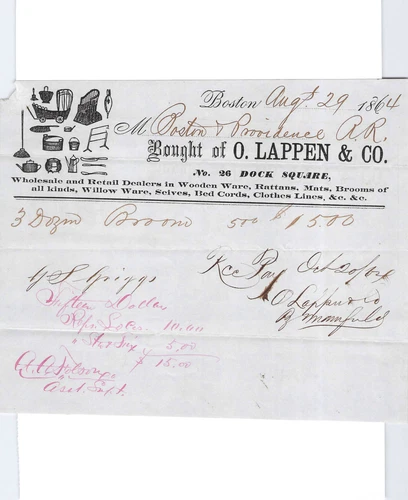 Boston Augt. 29 1864
M Boston & Providence R.R.
Bought of O. LAPPEN & CO.
No. 26 DOCK SQUARE,
Wholesale and Retail Dealers in Wooden Ware, Rattans, Mats, Brooms of
all kinds, Willow Ware, Seives, Bed Cords, Clothes Lines, &c. &c.
3 Dozen Broom 500 $15.00
Rec Pay Oct 20/64
Griggs
O Lappen & Co
Fifteen Dollars
10.00
5.00
$15.00
Asst. Supt.